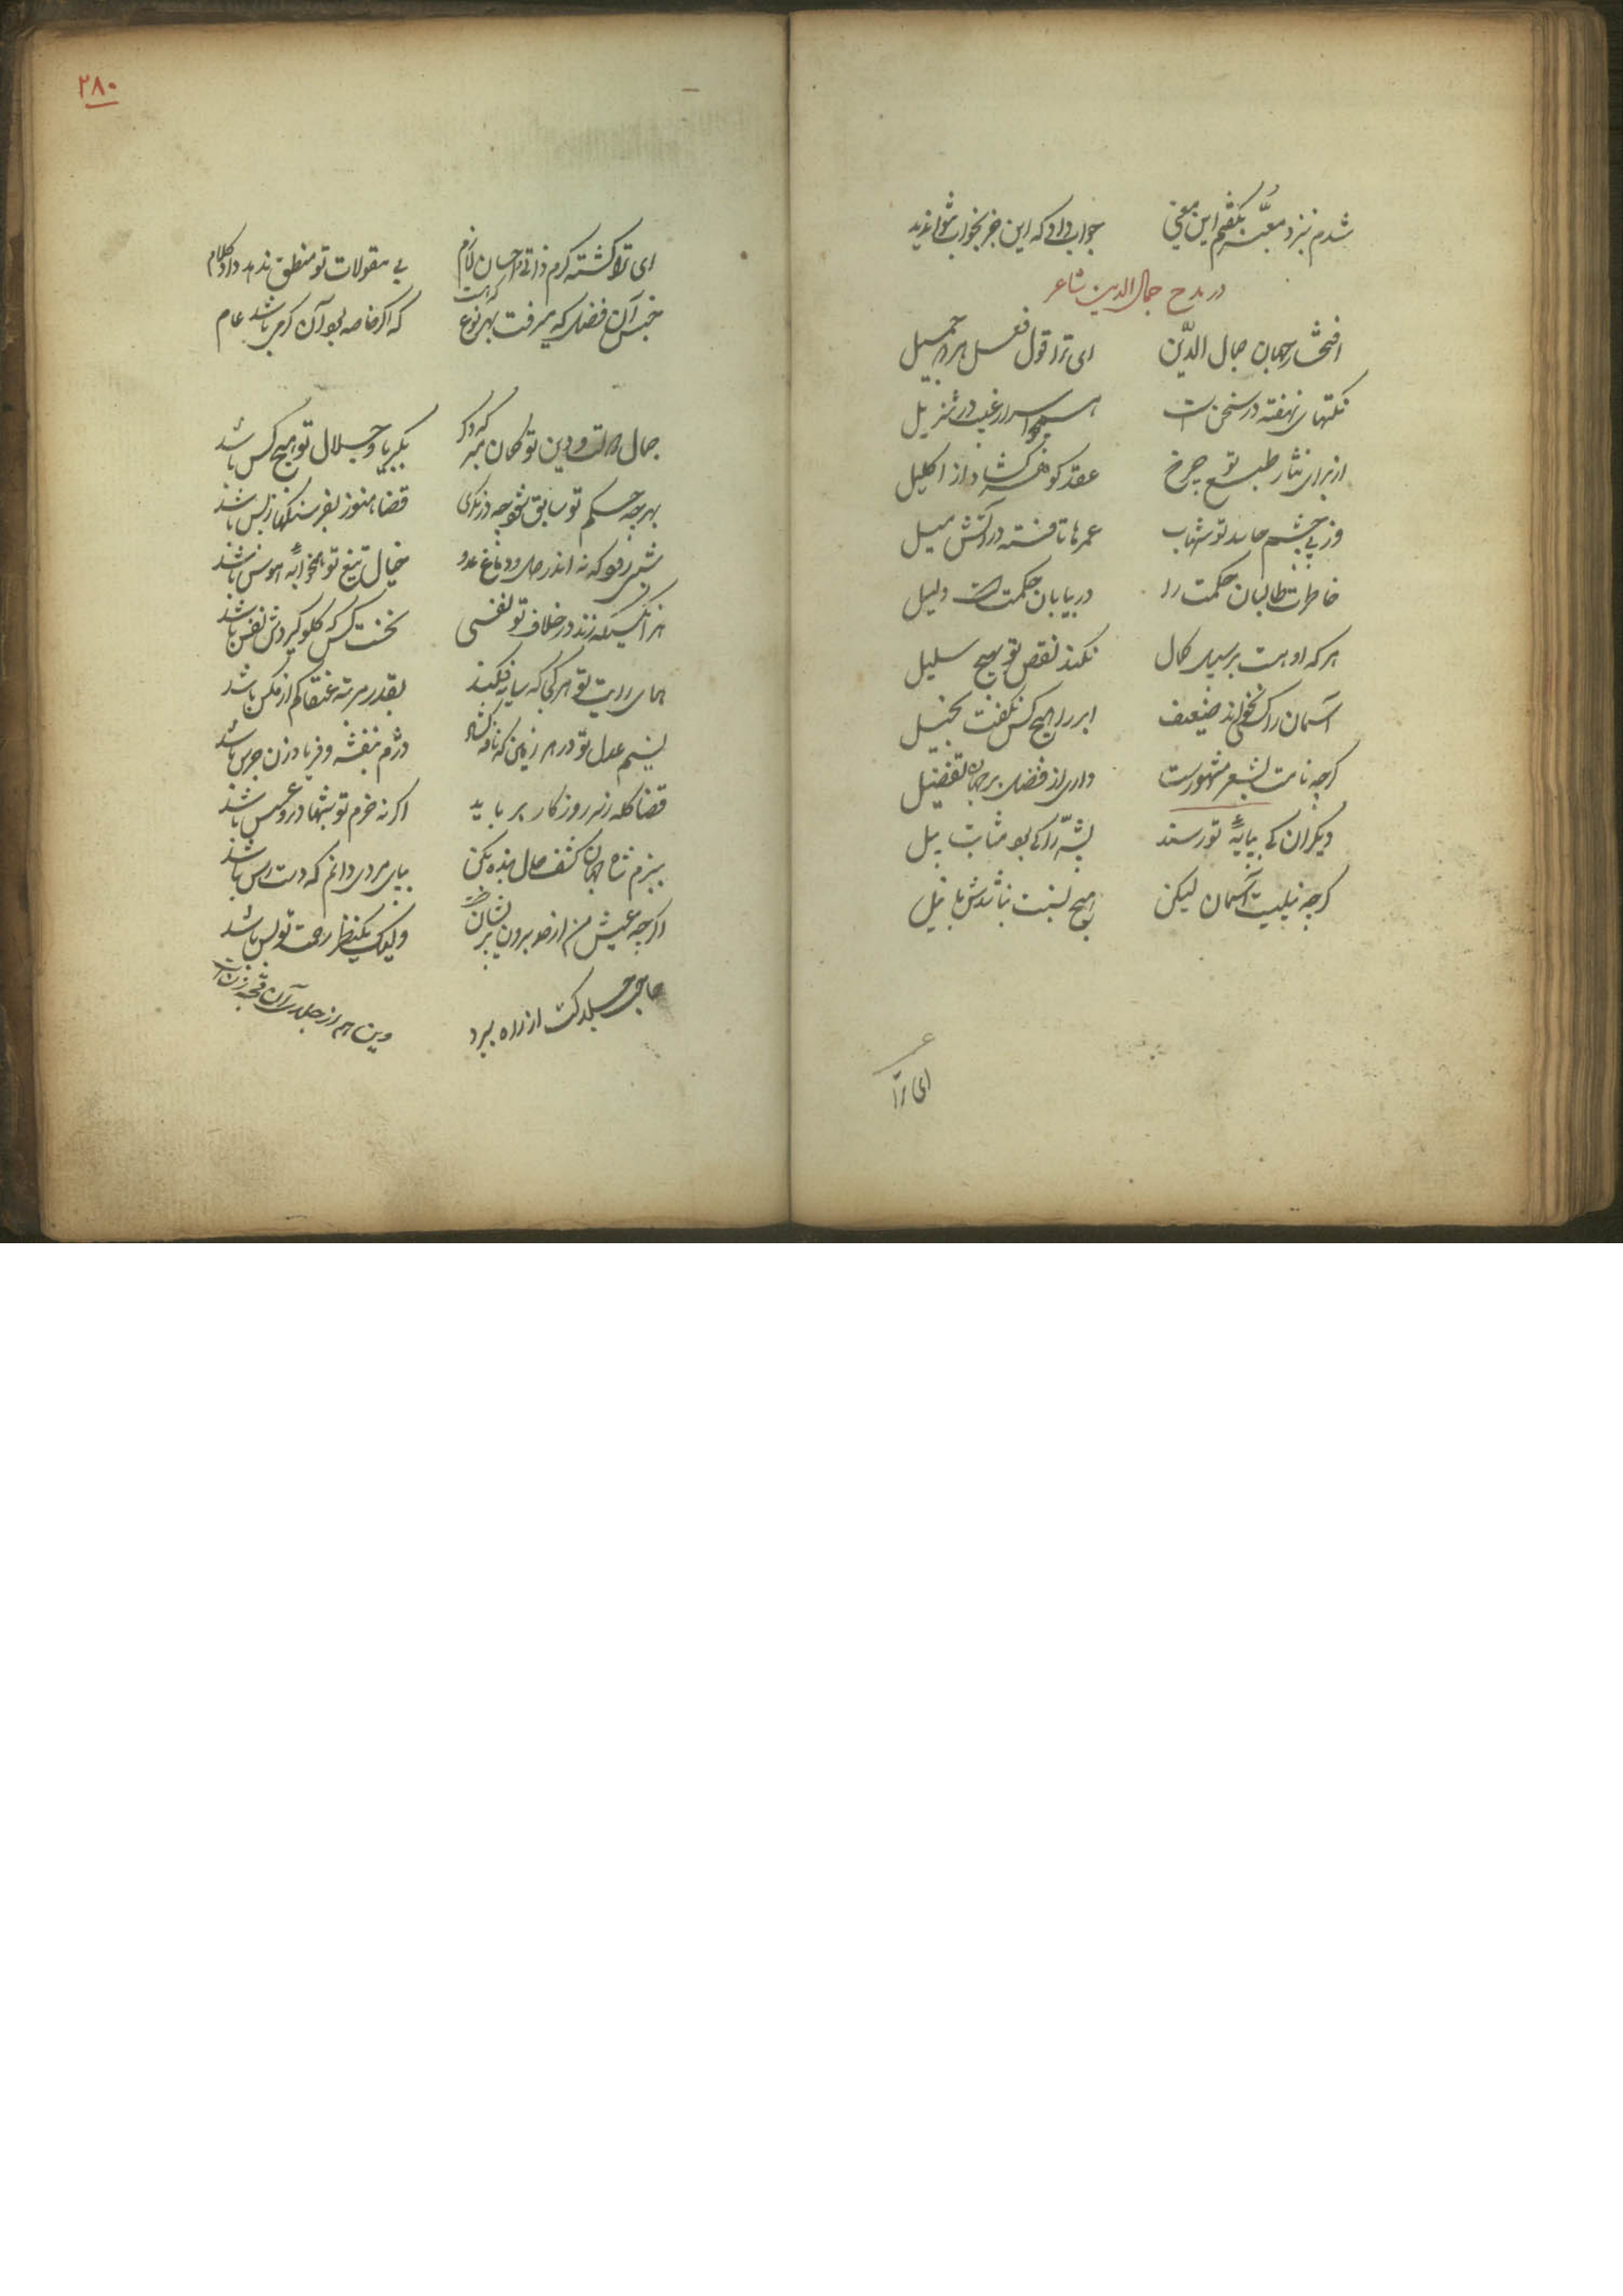 شدم بنزد معبّر بگفتم این معنی جواب داد که این خر بخواب نتواندید
در مدح جمال الدین شاعر
افتخار جهان جمال الدّین ای ترا قول و فعل هر دو جمیل
نکتهای نهفته در سخنت همچو اسرار غیب در تنزیل
از برای نثار طبع تو چرخ عقد گوهر گشاد از اکلیل
وز پی چشم حاسد تو شهاب عمرها تافته در آتش میل
خاطرت طالبان حکمت را در بیابان حکمتست دلیل
هر که او هست بر سبیل کمال نکند نقص تو بهیچ سبیل
آسمان را کی نخواند ضعیف ابر را هیچ کس نگفت بخیل
کرچه نامت بشعر مشهورست داری از فضل بر جهان تفضیل
دیکران کی بپایهٔ تو رسند پشّه را کی بود مثابت پیل
کرچه نیلیست آسمان لیکن هیچ نسبت نباشدش با نیل
ای ترا
۲۸۰
ای ترا کشته کرم ذاتی و احسان لازم بی مقولات تو منطق ندهد داد کلام
جنس آن فضل که میرفت بهر نوع که هست که اکر خاصه بود آن کرمی باشد عام
جمال دولت و دین تو کمان مبر که دکر بکبریا و جلال تو هیچ کس باشد
بهرچه حکم تو سابق شود چه در نکری قضا هنوز بفرسنکها ز پس باشد
شبی نبود که نه اندر دل و دماغ عدو خیال تیغ تو همخوابهٔ هوس باشد
هر آنکسیکه زند در خلاف تو نفسی نخست کس که کلو کیردش نفس باشد
همای رایت تو هر کجا که سایه فکند بقدر مرتبه عنقا کم از مکس باشد
نسیم عدل تو در هر زمین که نافه کشاد دژم بنفشه و فریاد زن جرس باشد
قضا کله ز سر روزکار برباید اکر نه حزم تو شبها درو عسس باشد
ببزم شاه جهان کشف حال بنده بکن بپای مردی دانم که دست رس باشد
اکرچه عیش من از حد برون پریشانست ولیک یکنظر رحمت تو بس باشد
حاجی جلدکت از راه ببرد وین هم از جلدی آن قحبه زنست